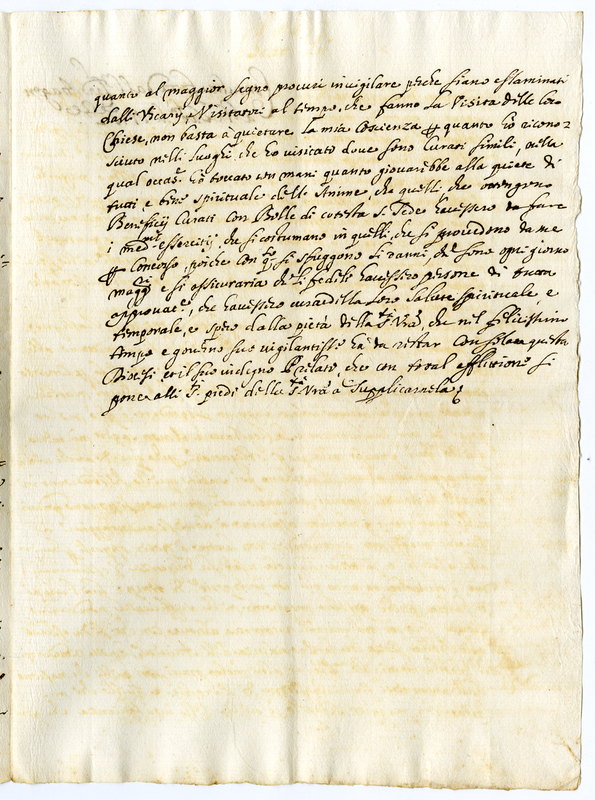 quanto al maggior segno procuri invigilare perche siano essaminati
dalli Vicarij, e Visitatori al tempo, che fanno la Visita delle loro
Chiese, non basta à quietare la mia Coscienza per quanto hò ricono=
sciuto nelli luoghi, che hò visitato dove sono Curati simili, nella
qual occas.e hò toccato con mani quanto giovarebbe alla quiete di
tutti, e bene spirituale dell' Anime, che quelli, che ottengono
Beneficij Curati con Bolle di cotesta S. Sede havessero da fare
i med.mi essercitij, che si costumano in quelli, che si provedono da me
per Concorso, poiche con si sfuggono li danni, che sono ogni giorno
magg.ri e si assicuraria che li fedeli havessero persone di
approvat.e, che havessero cura della loro salute spirituale, e
temporale, e spero dalla pietà della S.tà V.ra, che nel felicissimo
tempo e governo suo vigilantissimo hà da restar consolata questa
Diocesi, et il suo indegno Prelato, che con total afflittione si
pone alli S. piedi della S.tà V.ra à supplicarnela